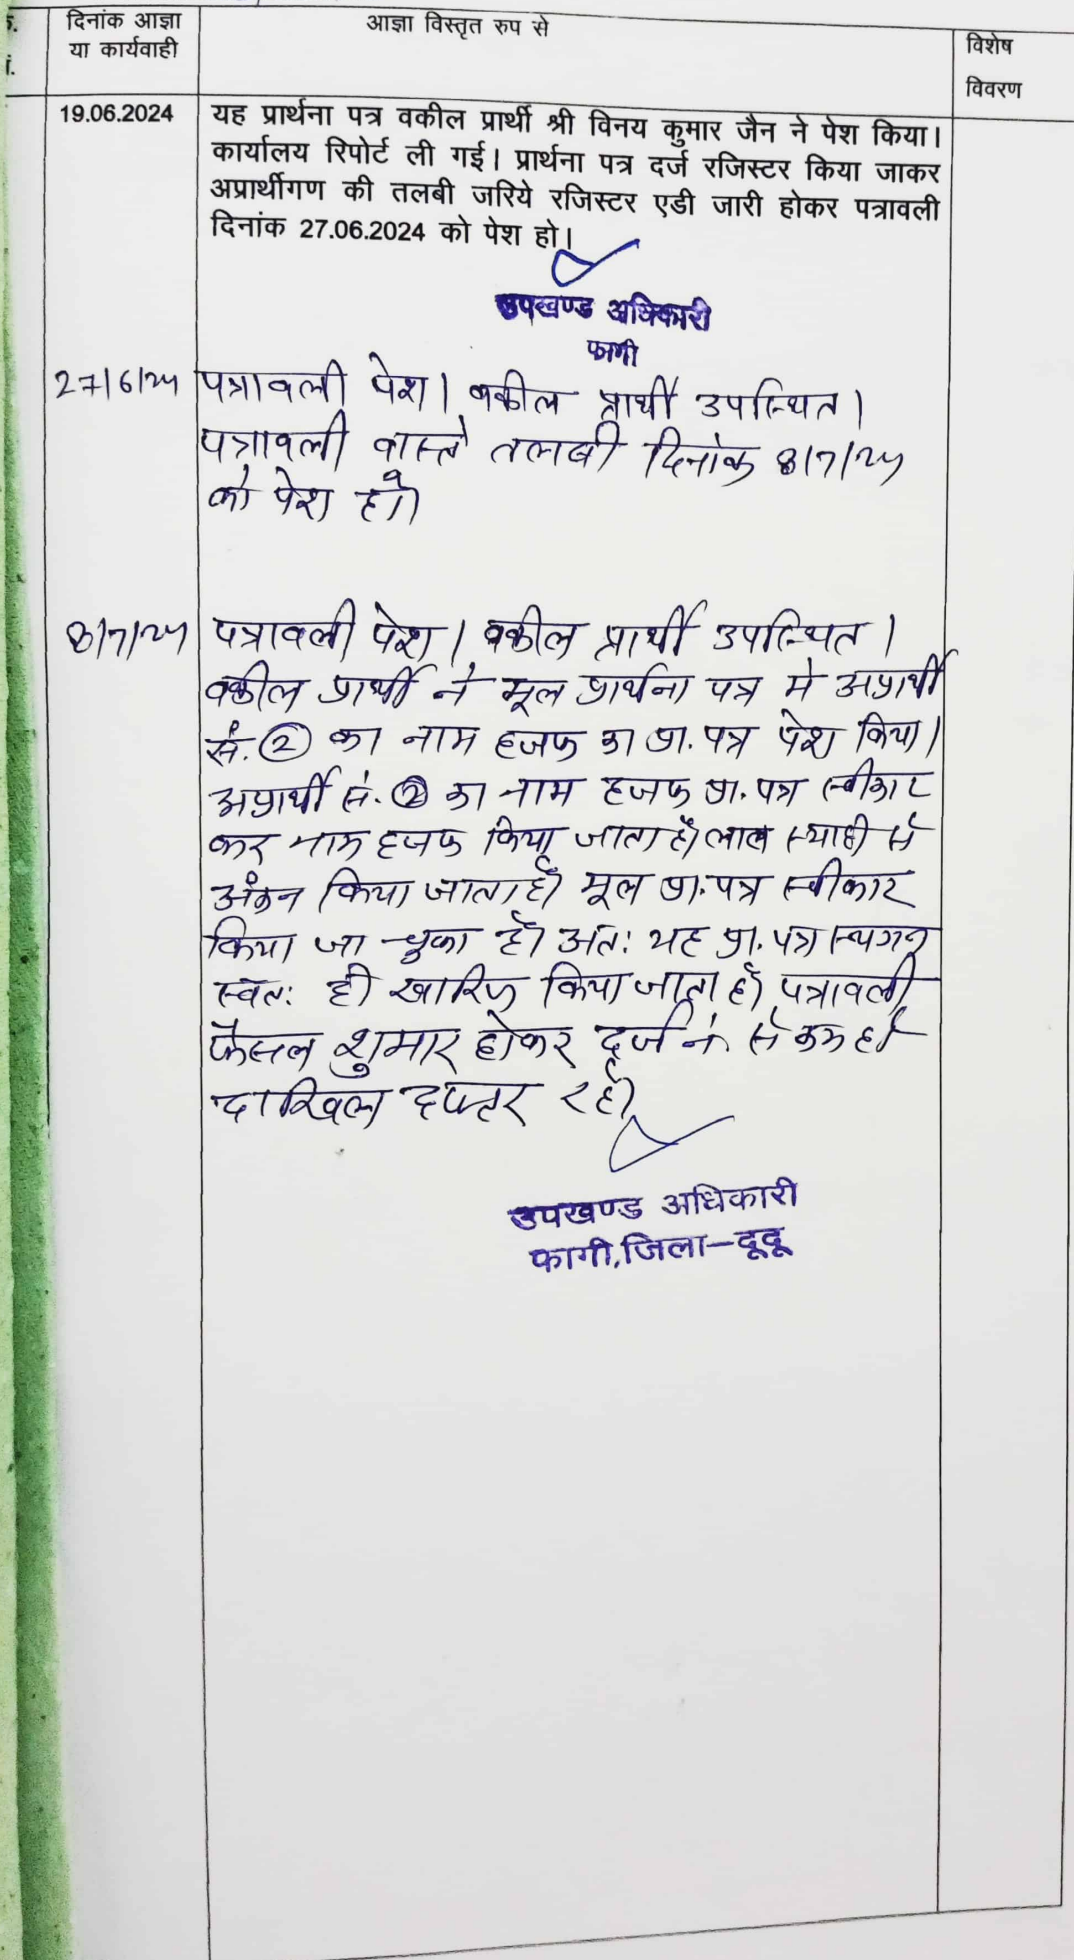 दिनांक आज्ञा
या कार्यवाही
आज्ञा विस्तृत रुप से
विशेष
विवरण
19.06.2024
यह प्रार्थना पत्र वकील प्रार्थी श्री विनय कुमार जैन ने पेश किया।
कार्यालय रिपोर्ट ली गई। प्रार्थना पत्र दर्ज रजिस्टर किया जाकर
अप्रार्थीगण की तलबी जरिये रजिस्टर एडी जारी होकर पत्रावली
दिनांक 27.06.2024 को पेश हो।
उपखण्ड अधिकारी
फागी
27/6/24 पत्रावली पेश। वकील प्रार्थी उपस्थित।
पत्रावली वास्ते तलबी दिनांक 8/7/24
को पेश हो।
8/7/24 पत्रावली पेश। वकील प्रार्थी उपस्थित।
वकील प्रार्थी ने मूल प्रार्थना पत्र मे अप्रार्थी
सं. ② का नाम हजफ का प्रा. पत्र पेश किया।
अप्रार्थी सं. ② का नाम हजफ प्रा. पत्र स्वीकार
कर नाम हजफ किया जाता है। लाल स्याही से
अंकन किया जाता है। मूल प्रा. पत्र स्वीकार
किया जा चुका है। अतः यह प्रा. पत्र स्थगन
स्वतः ही खारिज किया जाता है। पत्रावली
फैसल शुमार होकर दर्ज नं. से कम हो
दाखिल दफ्तर रहे।
उपखण्ड अधिकारी
फागी,जिला-दूदू